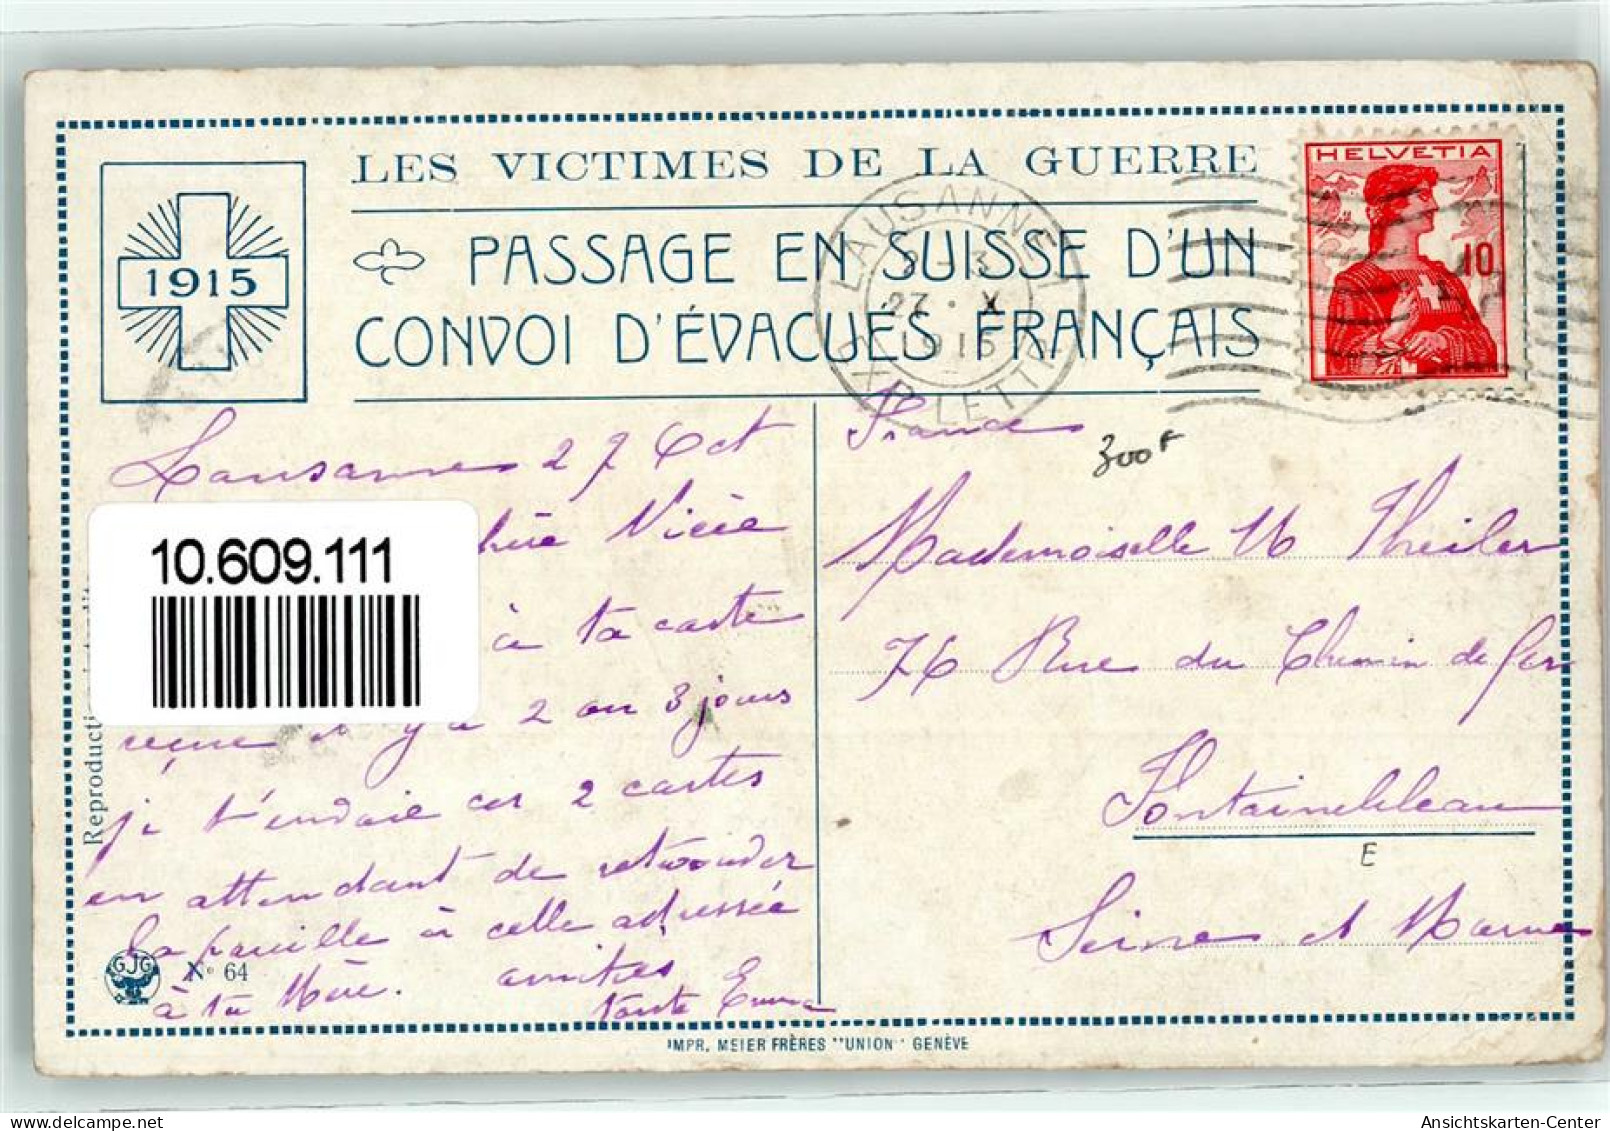 LES VICTIMES DE LA GUERRE
PASSAGE EN SUISSE D'UN
CONVOI D'ÉVACUÉS FRANÇAIS
1915
HELVETIA
10
LAUSANNE 1
2-3
27 · X
1915
EXP. LETTR.
Lausanne 27 Oct
Nièce
10.609.111
à ta carte
reçue il y a 2 ou 3 jours
je t'envoie ces 2 cartes
en attendant de
la pareille à celle adressée
à ta Mère. amitiés
tante Emma
France
300F
Mademoiselle M Theiler
76 Rue du Chemin de fer
Fontainebleau
E
Seine et Marne
Reproducti
GJG
N° 64
IMPR. MEIER FRÈRES "UNION" GENÈVE
Ansichtskarten-Center